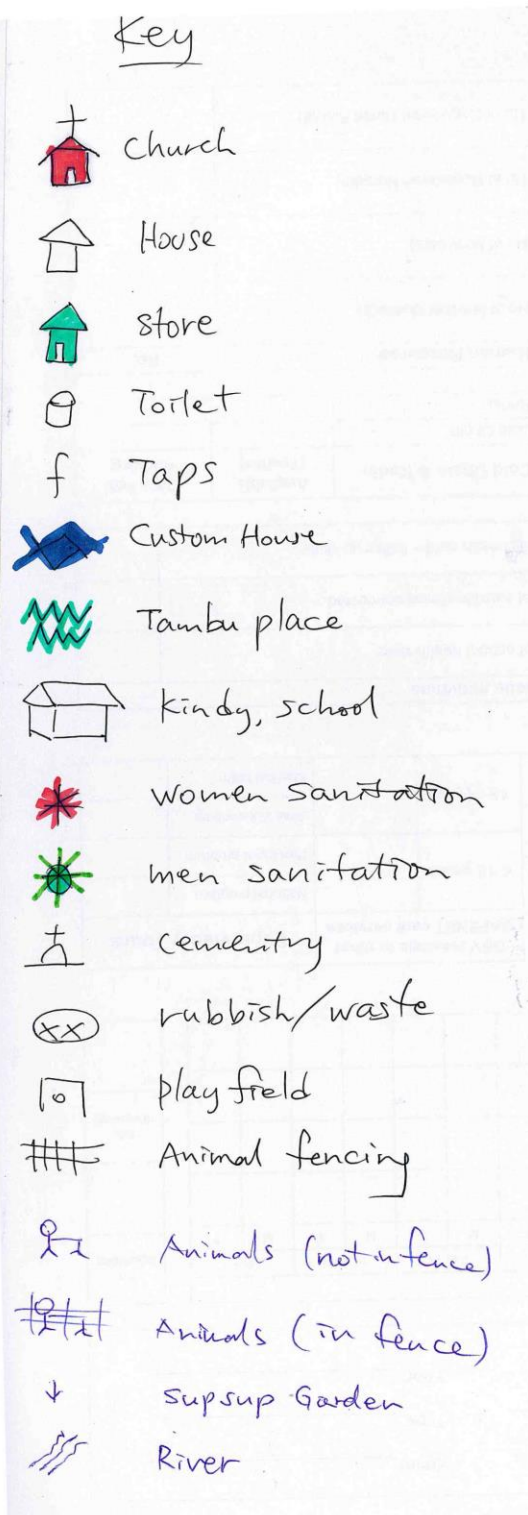 Key
Church
House
store
Toilet
Taps
Custom House
Tambu place
Kindy, school
women sanitation
men sanitation
cementry
rubbish/waste
play field
Animal fencing
Animals (not in fence)
Animals (in fence)
supsup Garden
River